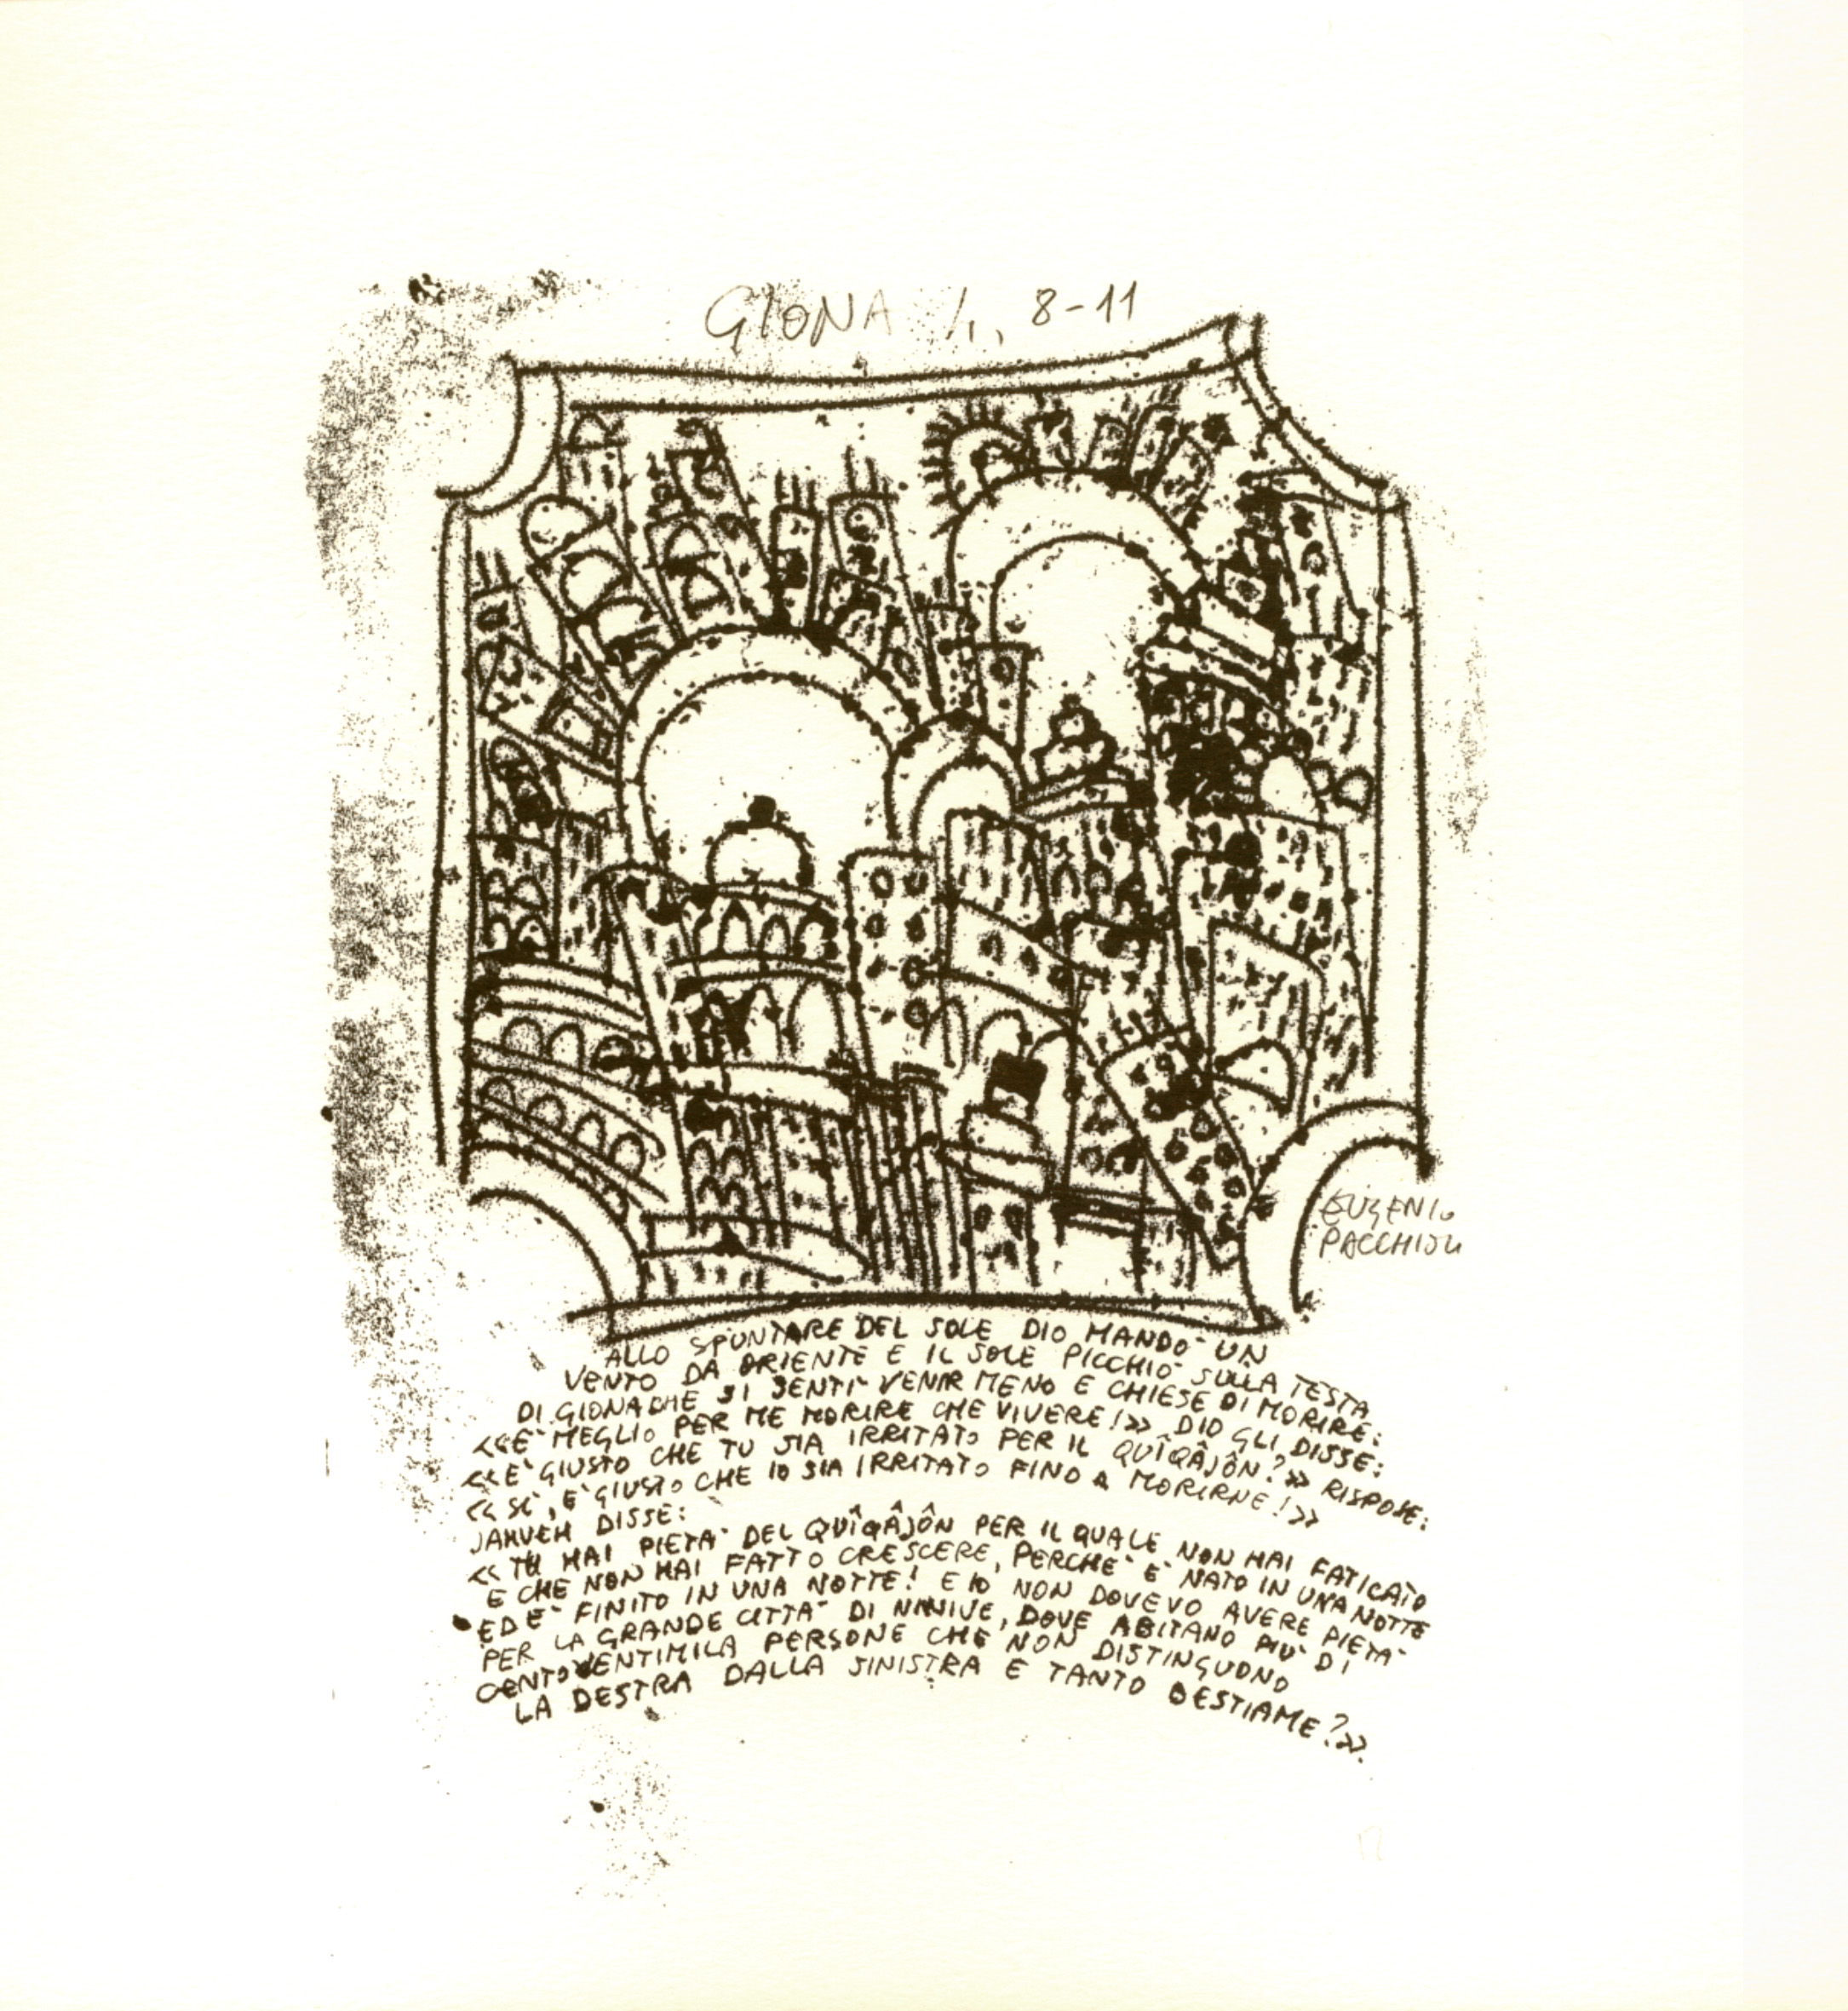 GIONA 4, 8-11
EUGENIO
PACCHIOLI
ALLO SPUNTARE DEL SOLE DIO MANDO' UN
VENTO DA ORIENTE E IL SOLE PICCHIO' SULLA TESTA
DI GIONA CHE SI SENTI' VENIR MENO E CHIESE DI MORIRE:
<<E' MEGLIO PER ME MORIRE CHE VIVERE!>> DIO GLI DISSE:
<<E' GIUSTO CHE TU SIA IRRITATO PER IL QUÎQÂJÔN?>> RISPOSE:
<<SI', E' GIUSTO CHE IO SIA IRRITATO FINO A MORIRNE!>>
JAHVEH DISSE:
<<TU HAI PIETA' DEL QUÎQÂJÔN PER IL QUALE NON HAI FATICATO
E CHE NON HAI FATTO CRESCERE, PERCHE' E' NATO IN UNA NOTTE
ED E' FINITO IN UNA NOTTE! E IO NON DOVEVO AVERE PIETA'
PER LA GRANDE CITTA' DI NINIVE, DOVE ABITANO PIU' DI
CENTOVENTIMILA PERSONE CHE NON DISTINGUONO
LA DESTRA DALLA SINISTRA E TANTO BESTIAME?>>.